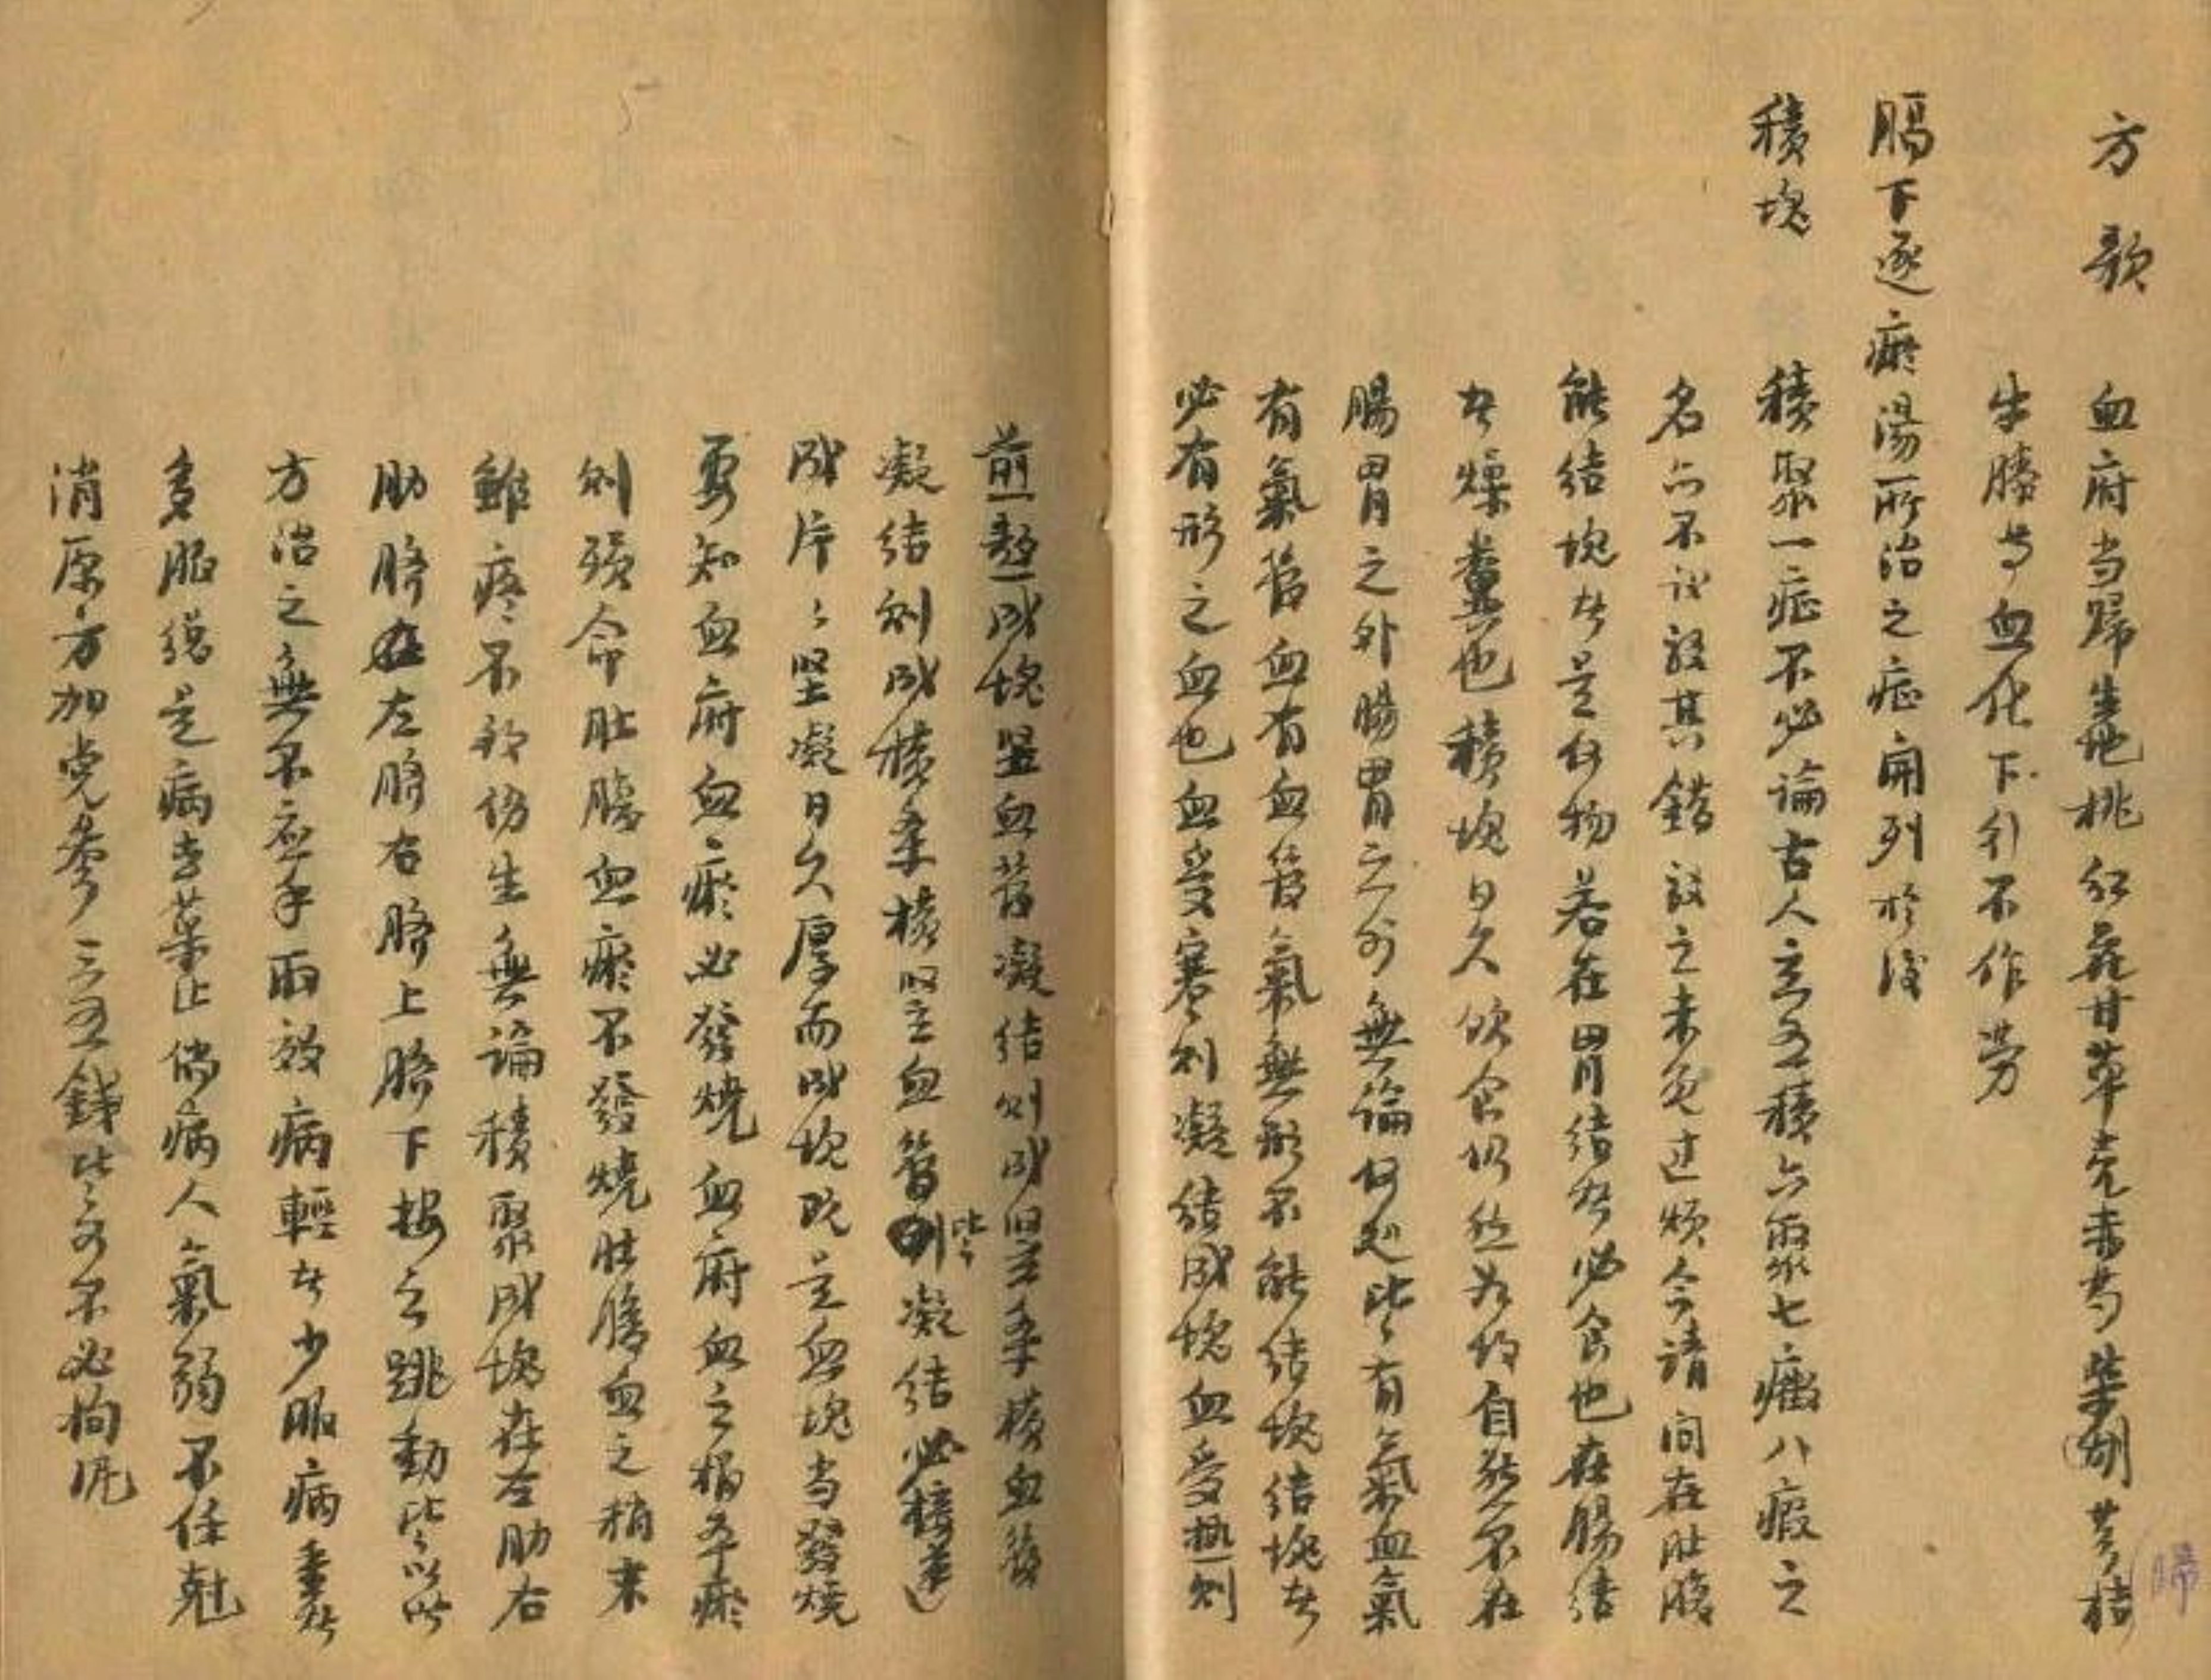 方歌 血府当歸生地桃紅花甘草壳赤芍柴胡芎桔
牛膝等血化下行不作劳
膈下逐瘀湯所治之症開列於後
積塊 積聚一症不必論古人立五積六聚七癥八瘕之
名亦不议駁其錯駁之未免过烦今請问在肚腹
能结塊者是何物若在胃结者必食也在腸结
者燥糞也積塊日久饮食仍然如故自然不在
腸胃之内必在腸胃之外腸胃之外無論何处皆有氣血氣
有氣管血有血管氣無形不能结塊结塊者
必有形之血也血受寒則凝结成塊血受热則
煎熬成塊竖血管凝结則成竖条横血管
凝结則成横条横竖血管皆凝结必接连
成片片々坚凝日久厚而成塊既是血塊当發燒
要知血府血瘀必發燒血府血之根本瘀
則殒命肚腹血瘀不發燒肚腹血之梢末
雖瘀不致伤生無論積聚成塊在左肋右
肋脐左脐右脐上脐下按之跳動皆以此
方治之無不应手取效病輕者少服病重者
多服總是病去药止倘病人氣弱不任尅
消原方加党参三五錢皆可不必拘泥
歸